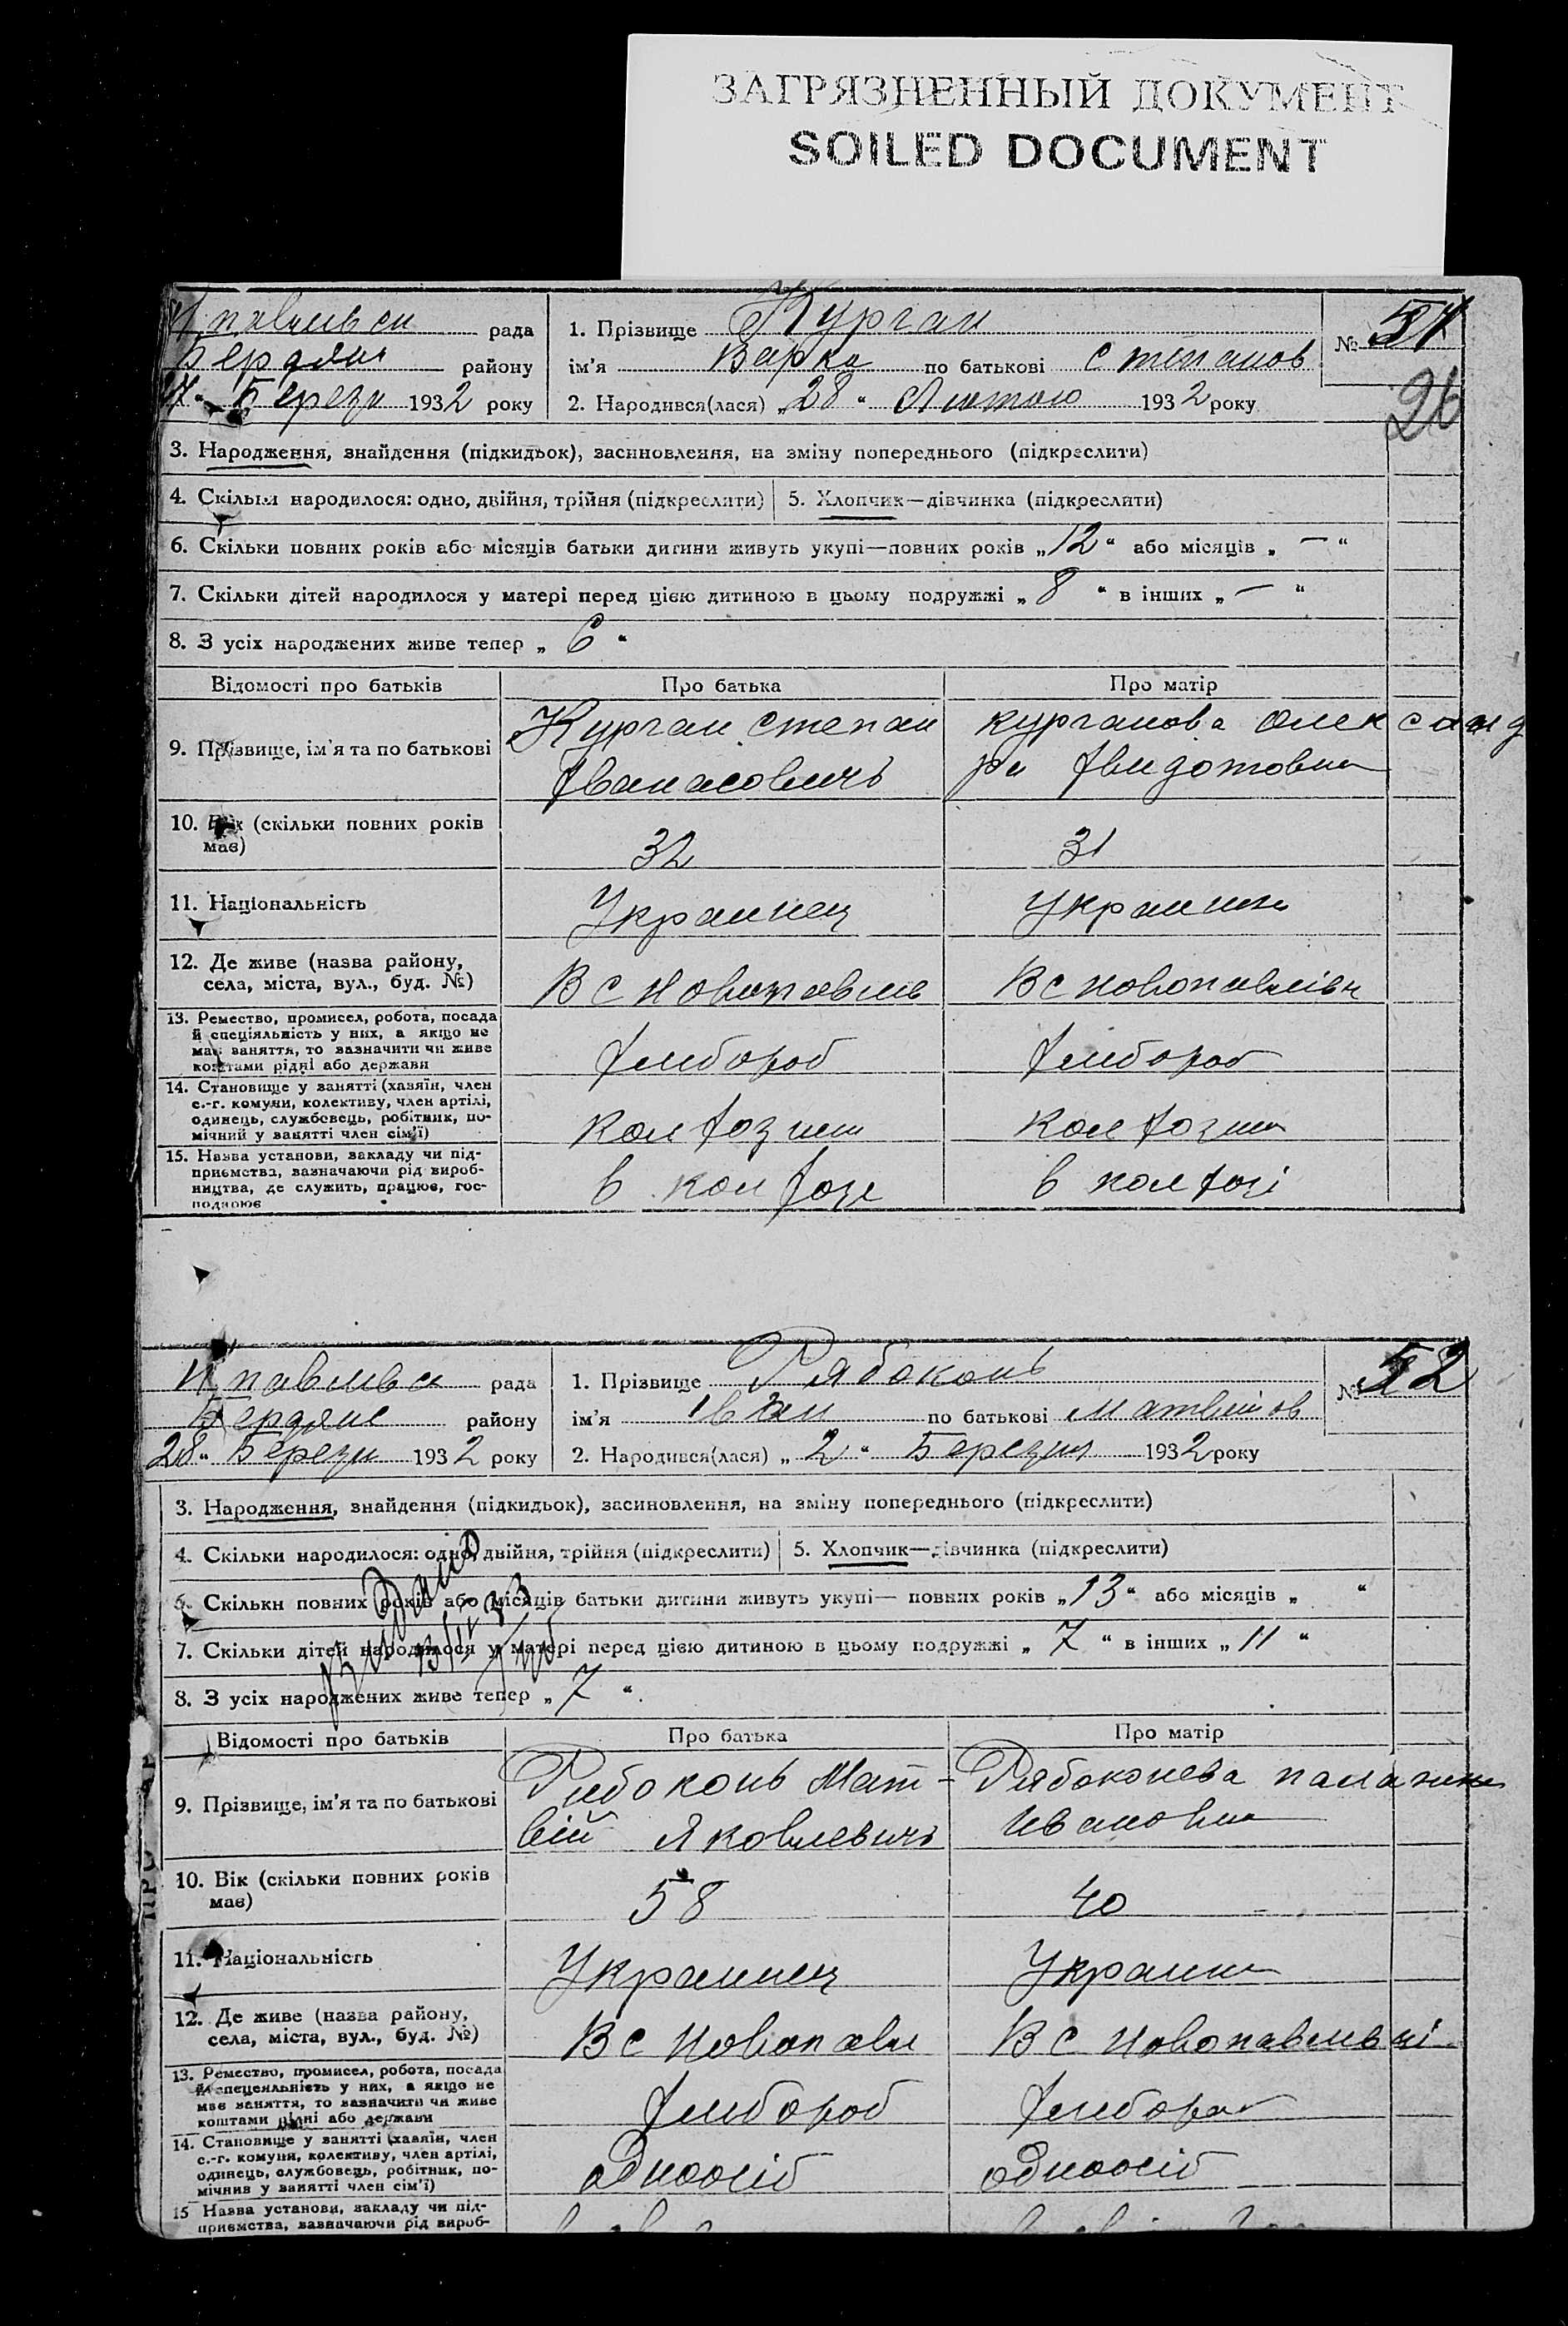 ЗАГРЯЗНЕННЫЙ ДОКУМЕНТ
SOILED DOCUMENT
рада
району
Березн 1932 року
1. Прізвище Курган
ім'я Варка по батькові Степанов
2. Народився(лася) „28“ Лютого 1932 року
№ 51
26
3. Народження, знайдення (підкидьок), засиновлення, на зміну попереднього (підкреслити)
4. Скільки народилося: одно, двійня, трійня (підкреслити) 5. Хлопчик—дівчинка (підкреслити)
6. Скільки повних років або місяців батьки дитини живуть укупі—повних років „12“ або місяців „—“
7. Скільки дітей народилося у матері перед цією дитиною в цьому подружжі „8“ в інших „—“
8. З усіх народжених живе тепер „6“
Відомості про батьків Про батька Про матір
9. Прізвище, ім'я та по батькові
Курган Степан
Курганова Олександ
10. Вік (скільки повних років має)
32
31
11. Національність
Украинец
12. Де живе (назва району,
села, міста, вул., буд. №)
В с Новопавлів
В с Новопавлівк
13. Ремество, промисел, робота, посада
й спеціяльність у них, а якщо не
має заняття, то зазначити чи живе
коштами рідні або держави
хлибороб
хлибороб
14. Становище у занятті (хазяїн, член
с.-г. комуни, колективу, член артілі,
одинець, службовець, робітник, по-
мічний у занятті член сім'ї)
15. Назва установи, закладу чи під-
приємства, зазначаючи рід вироб-
ництва, де служить, працює, гос-
подарює
в колхозі
в колхозі
рада
району
28“ Березн 1932 року
1. Прізвище Рябоконь
ім'я Іван по батькові Матвійов
2. Народився(лася) „2“ Березня 1932 року
№ 52
3. Народження, знайдення (підкидьок), засиновлення, на зміну попереднього (підкреслити)
4. Скільки народилося: одно, двійня, трійня (підкреслити) 5. Хлопчик—дівчинка (підкреслити)
6. Скільки повних років або місяців батьки дитини живуть укупі— повних років „13“ або місяців „ “
7. Скільки дітей народилося у матері перед цією дитиною в цьому подружжі „7“ в інших „11“
8. З усіх народжених живе тепер „7“
Видано
Відомості про батьків Про батька Про матір
9. Прізвище, ім'я та по батькові
Рябоконь Мат-
вій Яковлевичь
Рябоконева
Ивановна
10. Вік (скільки повних років має)
58
40
11. Національність
Украинец
12. Де живе (назва району,
села, міста, вул., буд. №)
В с Новопавл
В с Новопавлівкі
13. Ремество, промисел, робота, посада
й спецеяльність у них, а якщо не
має заняття, то зазначити чи живе
коштами рідні або держави
хлибороб
хлибороб
14. Становище у занятті (хазяїн, член
с.-г. комуни, колективу, член артілі,
одинець, службовець, робітник, по-
мічнив у занятті член сім'ї)
одноосіб
одноосіб
15 Назва установи, закладу чи під-
приємства, зазначаючи рід вироб-